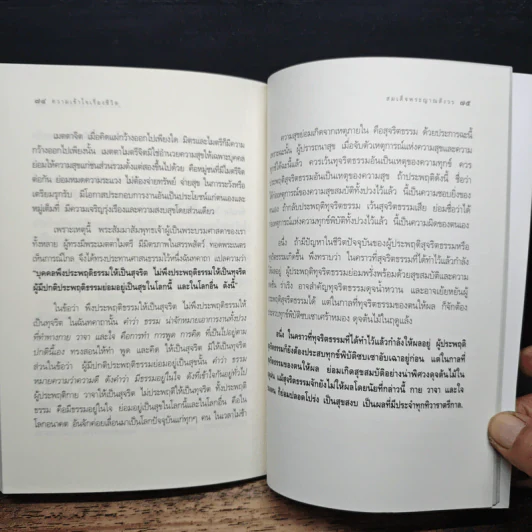 ๗๔ ความเข้าใจเรื่องชีวิต
เมตตาจิต เมื่อคิดแผ่กว้างออกไปเพียงใด มิตรและไมตรีก็มีความ
กว้างออกไปเพียงนั้น เมตตาไมตรีจิตมีใช่อำนวยความสุขให้เฉพาะบุคคล
ย่อมให้ความสุขแก่ชนส่วนรวมตั้งแต่สองขึ้นไปด้วย คือหมู่ชนที่มีไมตรีจิต
ต่อกัน ย่อมหมดความระแวง ไม่ต้องจ่ายทรัพย์ จ่ายสุข ในการระวังหรือ
เตรียมรุกรับ มีโอกาสประกอบการงานอันเป็นประโยชน์แก่ตนเองและ
หมู่เต็มที่ มีความเจริญรุ่งเรืองและความสงบสุขโดยส่วนเดียว
เพราะเหตุนี้ พระสัมมาสัมพุทธเจ้าผู้เป็นพระบรมศาสดาของเรา
ทั้งหลาย ผู้ทรงมีพระเมตตาไมตรี มีมิตรภาพในสรรพสัตว์ ทอดพระเนตร
เห็นการณ์ไกล จึงได้ทรงประทานศาสนธรรมไว้หนึ่งฉันคาถา แปลความว่า
"บุคคลพึงประพฤติธรรมให้เป็นสุจริต ไม่พึงประพฤติธรรมให้เป็นทุจริต
ผู้มีปกติประพฤติธรรมย่อมอยู่เป็นสุขในโลกนี้ และในโลกอื่น ดังนี้"
ในข้อว่า พึงประพฤติธรรมให้เป็นสุจริต ไม่พึงประพฤติธรรมให้
เป็นทุจริต ในฉันทคาถานั้น คำว่า ธรรม น่าจักหมายเอาการงานทั้งปวง
ที่ทำทางกาย วาจา และใจ คือการทำ การพูด การคิด ที่เป็นไปอยู่ตาม
ปกตินี้เอง ทรงสอนให้ทำ พูด และคิด ให้เป็นสุจริต มิให้เป็นทุจริต
ส่วนในข้อว่า ผู้มีปกติประพฤติธรรมย่อมอยู่เป็นสุขนั้น คำว่า ธรรม
หมายความว่าความดี ดังคำว่า มีธรรมอยู่ในใจ ดังที่เข้าใจกันอยู่ทั่วไป
เมื่อประพฤติกาย วาจา ใจเป็นสุจริต ไม่ประพฤติให้เป็นทุจริต ทั้งประพฤติ
ธรรม คือมีธรรมอยู่ในใจ ย่อมอยู่เป็นสุขในโลกนี้และในโลกอื่น คือใน
โลกอนาคต อันจักค่อยเลื่อนมาเป็นโลกปัจจุบันแก่ทุกๆ คน ในเวลาไม่ช้า
สมเด็จพระญาณสังวร ๗๕
ความสุขย่อมเกิดจากเหตุภายใน คือสุจริตธรรม ด้วยประการฉะนี้
เพราะฉะนั้น ผู้ปรารถนาสุข เมื่อจับตัวเหตุการณ์แห่งความสุขและความ
ทุกข์ได้ฉะนี้แล้ว ควรเว้นทุจริตธรรมอันเป็นเหตุของความทุกข์ พึง
ประพฤติสุจริตธรรมอันเป็นเหตุของความสุข ถ้าประพฤติดังนี้ ชื่อว่า
ได้ก่อเหตุการณ์แห่งความสุขสมบัติทั้งปวงไว้แล้ว นี้เป็นความชอบยิ่งของ
ตนเอง ถ้ากลับประพฤติทุจริตธรรม เว้นสุจริตธรรมเสีย ย่อมชื่อว่าได้
ก่อเหตุการณ์แห่งความทุกข์พิบัติทั้งปวงไว้แล้ว นี้เป็นความผิดของตนเอง
อนึ่ง ถ้ามีปัญหาในชีวิตปัจจุบันของผู้ประพฤติสุจริตธรรมหรือ
ทุจริตธรรมเกิดขึ้น พึงทราบว่า ในคราวที่สุจริตธรรมที่ได้ทำไว้แล้วกำลัง
ให้ผลอยู่ ผู้ประพฤติทุจริตธรรมย่อมพรั่งพร้อมด้วยสุขสมบัติและความ
ชื่นบาน ร่าเริง อาจสำคัญทุจริตธรรมดุจน้ำหวาน และอาจเย้ยหยันผู้
ประพฤติสุจริตธรรมได้ แต่ในกาลที่ทุจริตธรรมของตนให้ผล ก็จักต้อง
ประสบทุกข์พิบัติซบเซาเศร้าหมอง ดุจต้นไม้ในฤดูแล้ง
อนึ่ง ในคราวที่ทุจริตธรรมที่ได้ทำไว้แล้วกำลังให้ผลอยู่ ผู้ประพฤติ
สุจริตธรรมก็ยังต้องประสบทุกข์พิบัติซบเซาอับเฉาอยู่ก่อน แต่ในกาลที่
สุจริตธรรมของตนให้ผล ย่อมเกิดสุขสมบัติอย่างน่าพิศวงดุจต้นไม้ใน
ฤดูฝน แม้สุจริตธรรมจักยังไม่ให้ผลโดยนัยที่กล่าวนี้ กาย วาจา และใจ
ของตน ก็ย่อมปลอดโปร่ง เป็นสุขสงบ เป็นผลที่มีประจำทุกทิวาราตรีกาล.